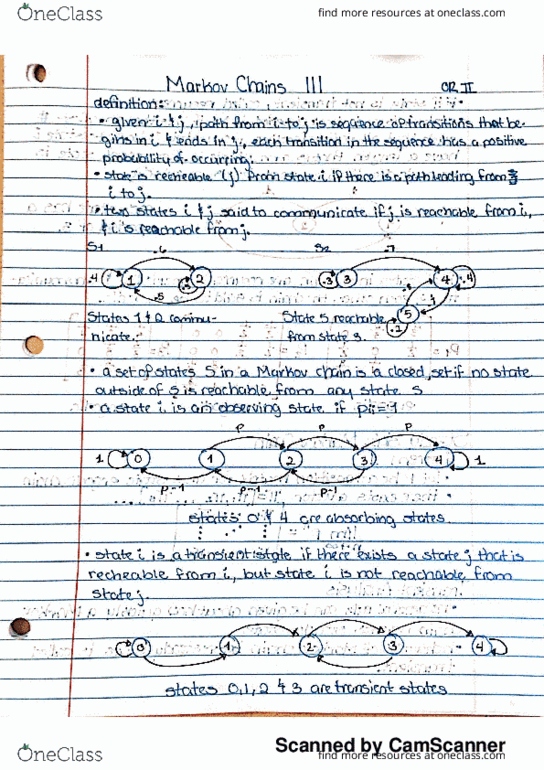 OneClass
find more resources at oneclass.com
Markov Chains III
OR II
definition:
• given i & j, path from i to j is sequence of transitions that be-
gins in i & ends in j, each transition in the sequence has a positive
probability of occurring.
• state is recheable (j) from state i if there is a path leading from
i to j.
• two states i & j said to communicate if j is reachable from i,
& i is reachable from j.
S1 .6 S2 .7
.4 1 2 .3 3 4 .4
.5 .5 5
.2
States 1 & 2 commu- State 5 reachable
nicate. from state 3.
• a set of states S in a Markov chain is a closed set if no state
outside of S is reachable from any state S
• a state i is an observing state if pii=1
P P P
1 0 1 2 3 4 1
P-1 P-1 P-1
states 0 & 4 are absorbing states.
• state i is a transient state if there exists a state j that is
recheable from i, but state i is not reachable from
state j.
0 1 2 3 4
states 0,1,2 & 3 are transient states
Scanned by CamScanner
OneClass
find more resources at oneclass.com